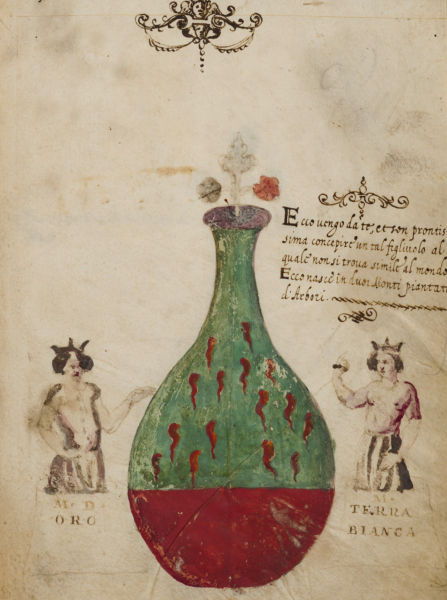 Ecco vengo da te, et son prontis
sima concepire un tal figliuolo al
quale non si trova simile al mondo
Ecco nasce in duoi Monti piantati
d'Arbori.
M. D
ORO
M.
TERRA
BIANCA